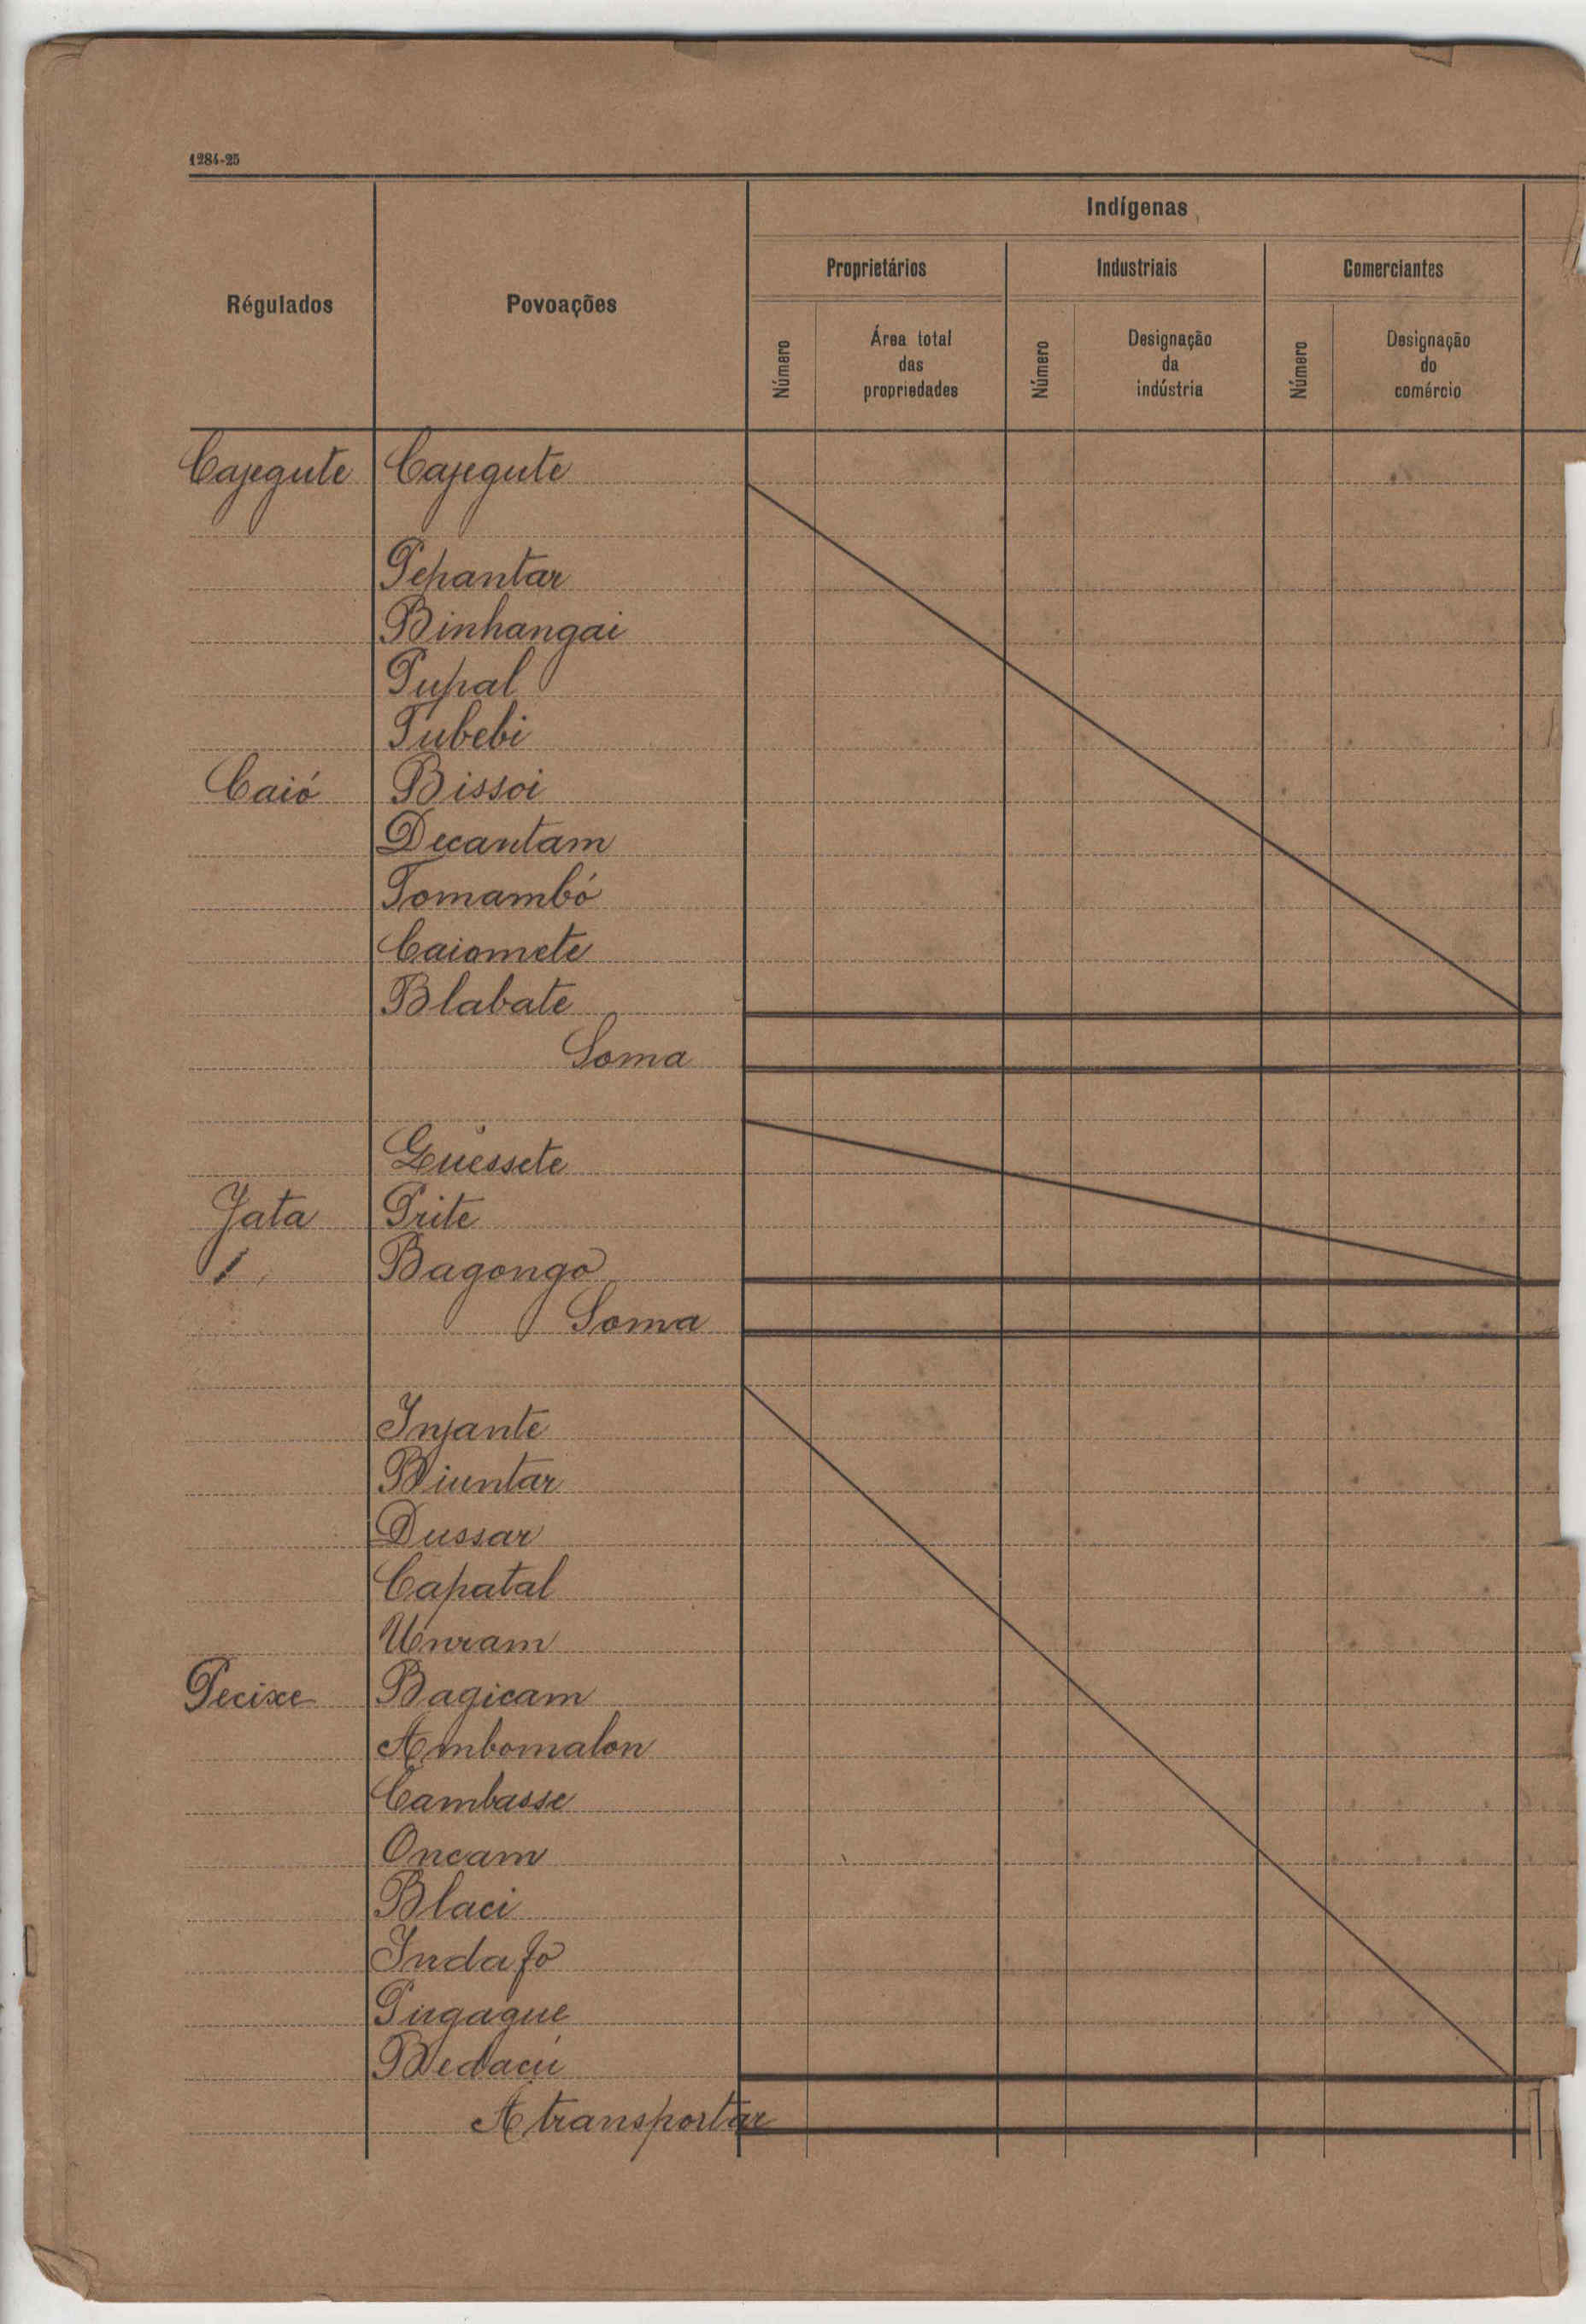 1284-25
Indígenas
Proprietários Industriais Comerciantes
Régulados Povoações
Número Área total das propriedades Número Designação da indústria Número Designação do comércio
Cajegute Cajegute
Pepantar
Binhangai
Pupal
Tubebi
Caió Bissoi
Decantam
Tomambó
Caiomete
Blabate
Soma
Guessete
Jata Prite
Bagongo
Soma
Injante
Biuntar
Dussar
Capatal
Unram
Pecixe Bagicam
Ambomalon
Cambasse
Oncam
Blaci
Indafo
Pirgague
Bedacú
A transportar